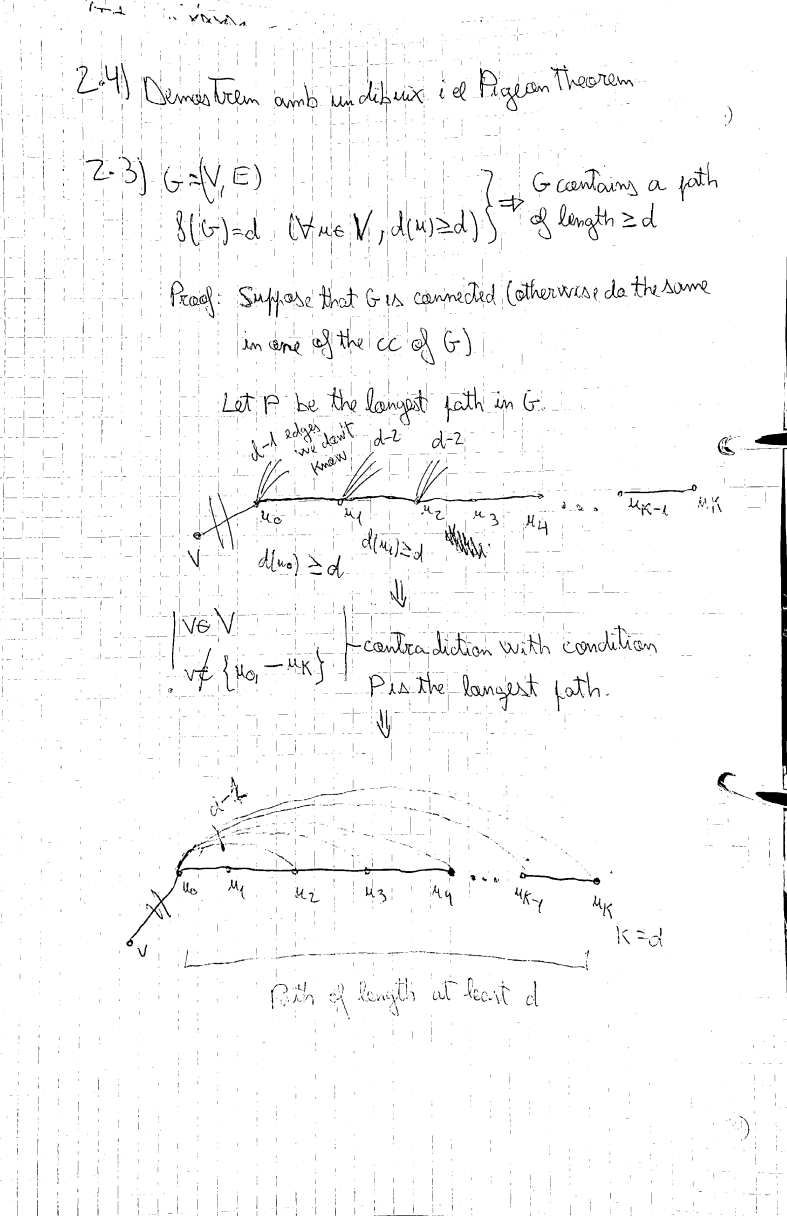 2.4) Demostrem amb un dibuix i el Pigeon Theorem
2.3) G=(V, E)
δ(G)=d (∀u∈V, d(u)≥d) } ⇒ G contains a path of length ≥ d
Proof: Suppose that G is connected (otherwise do the same
in one of the cc of G)
Let P be the longest path in G.
d-1 edges we don't know d-2 d-2
u0 u1 u2 u3 u4 ... uK-1 uK
v d(u0) ≥ d d(u1) ≥ d
⇓
v∈V
v∉{u0, — uK} contradiction with condition
P is the longest path.
⇓
d-1
u0 u1 u2 u3 u4 ... uK-1 uK
v K=d
Path of length at least d